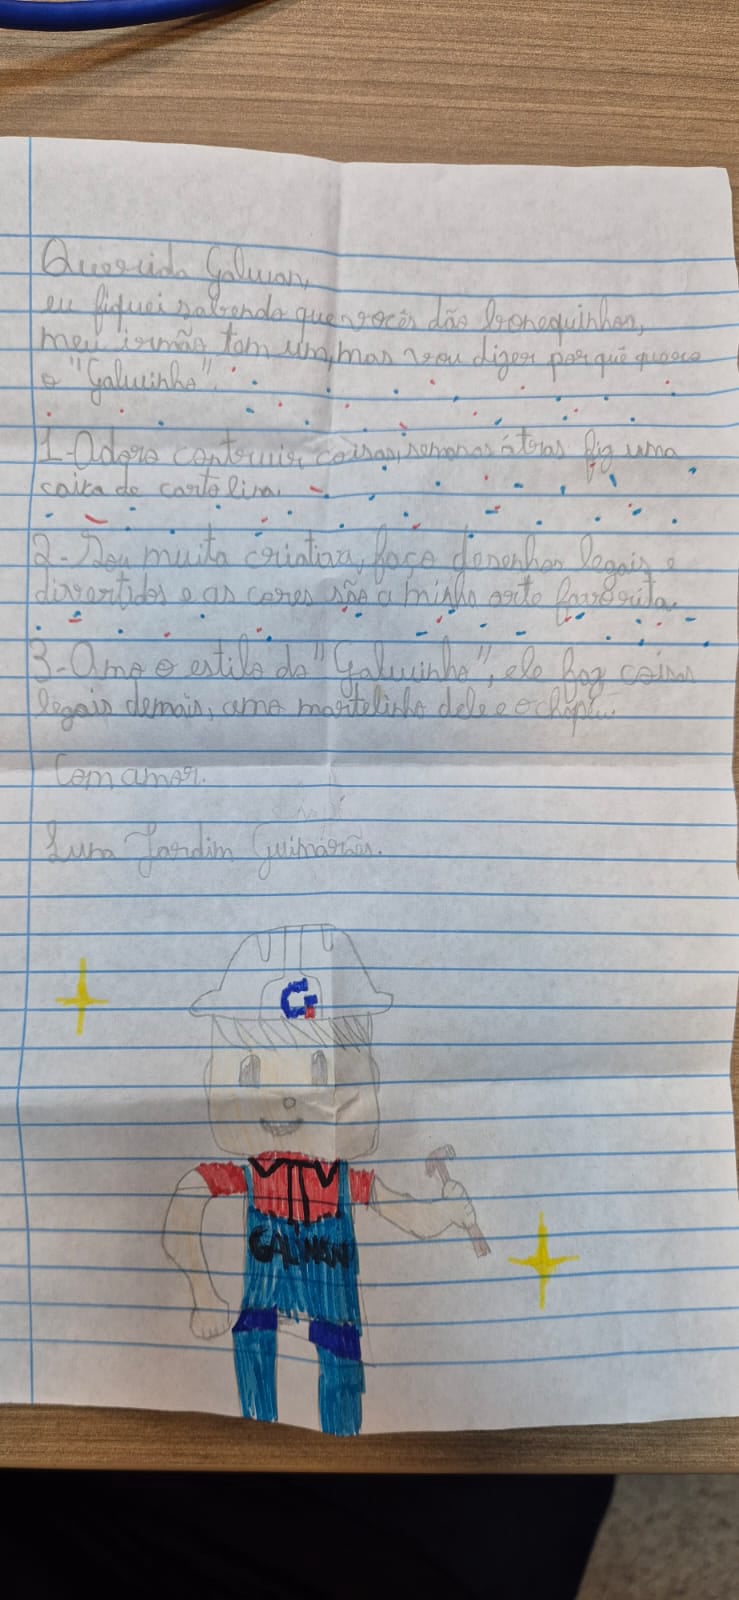 Querida Galwan,
eu fiquei sabendo que vocês dão bonequinhos,
meu irmão tem um, mas vou dizer por quê quero
o "Galwinho".
1-Adoro contruir coisas, semanas átras fiz uma
caixa de cartolina.
2-Sou muita criativa, faço desenhos legais e
divertidos e as cores são a minha arte favorita.
3-Amo o estilo do "Galwinho", ele faz coisas
legais demais, amo martelinho dele e o chápeu...
Com amor.
Luna Jardim Guimarães.
G
GALWAN